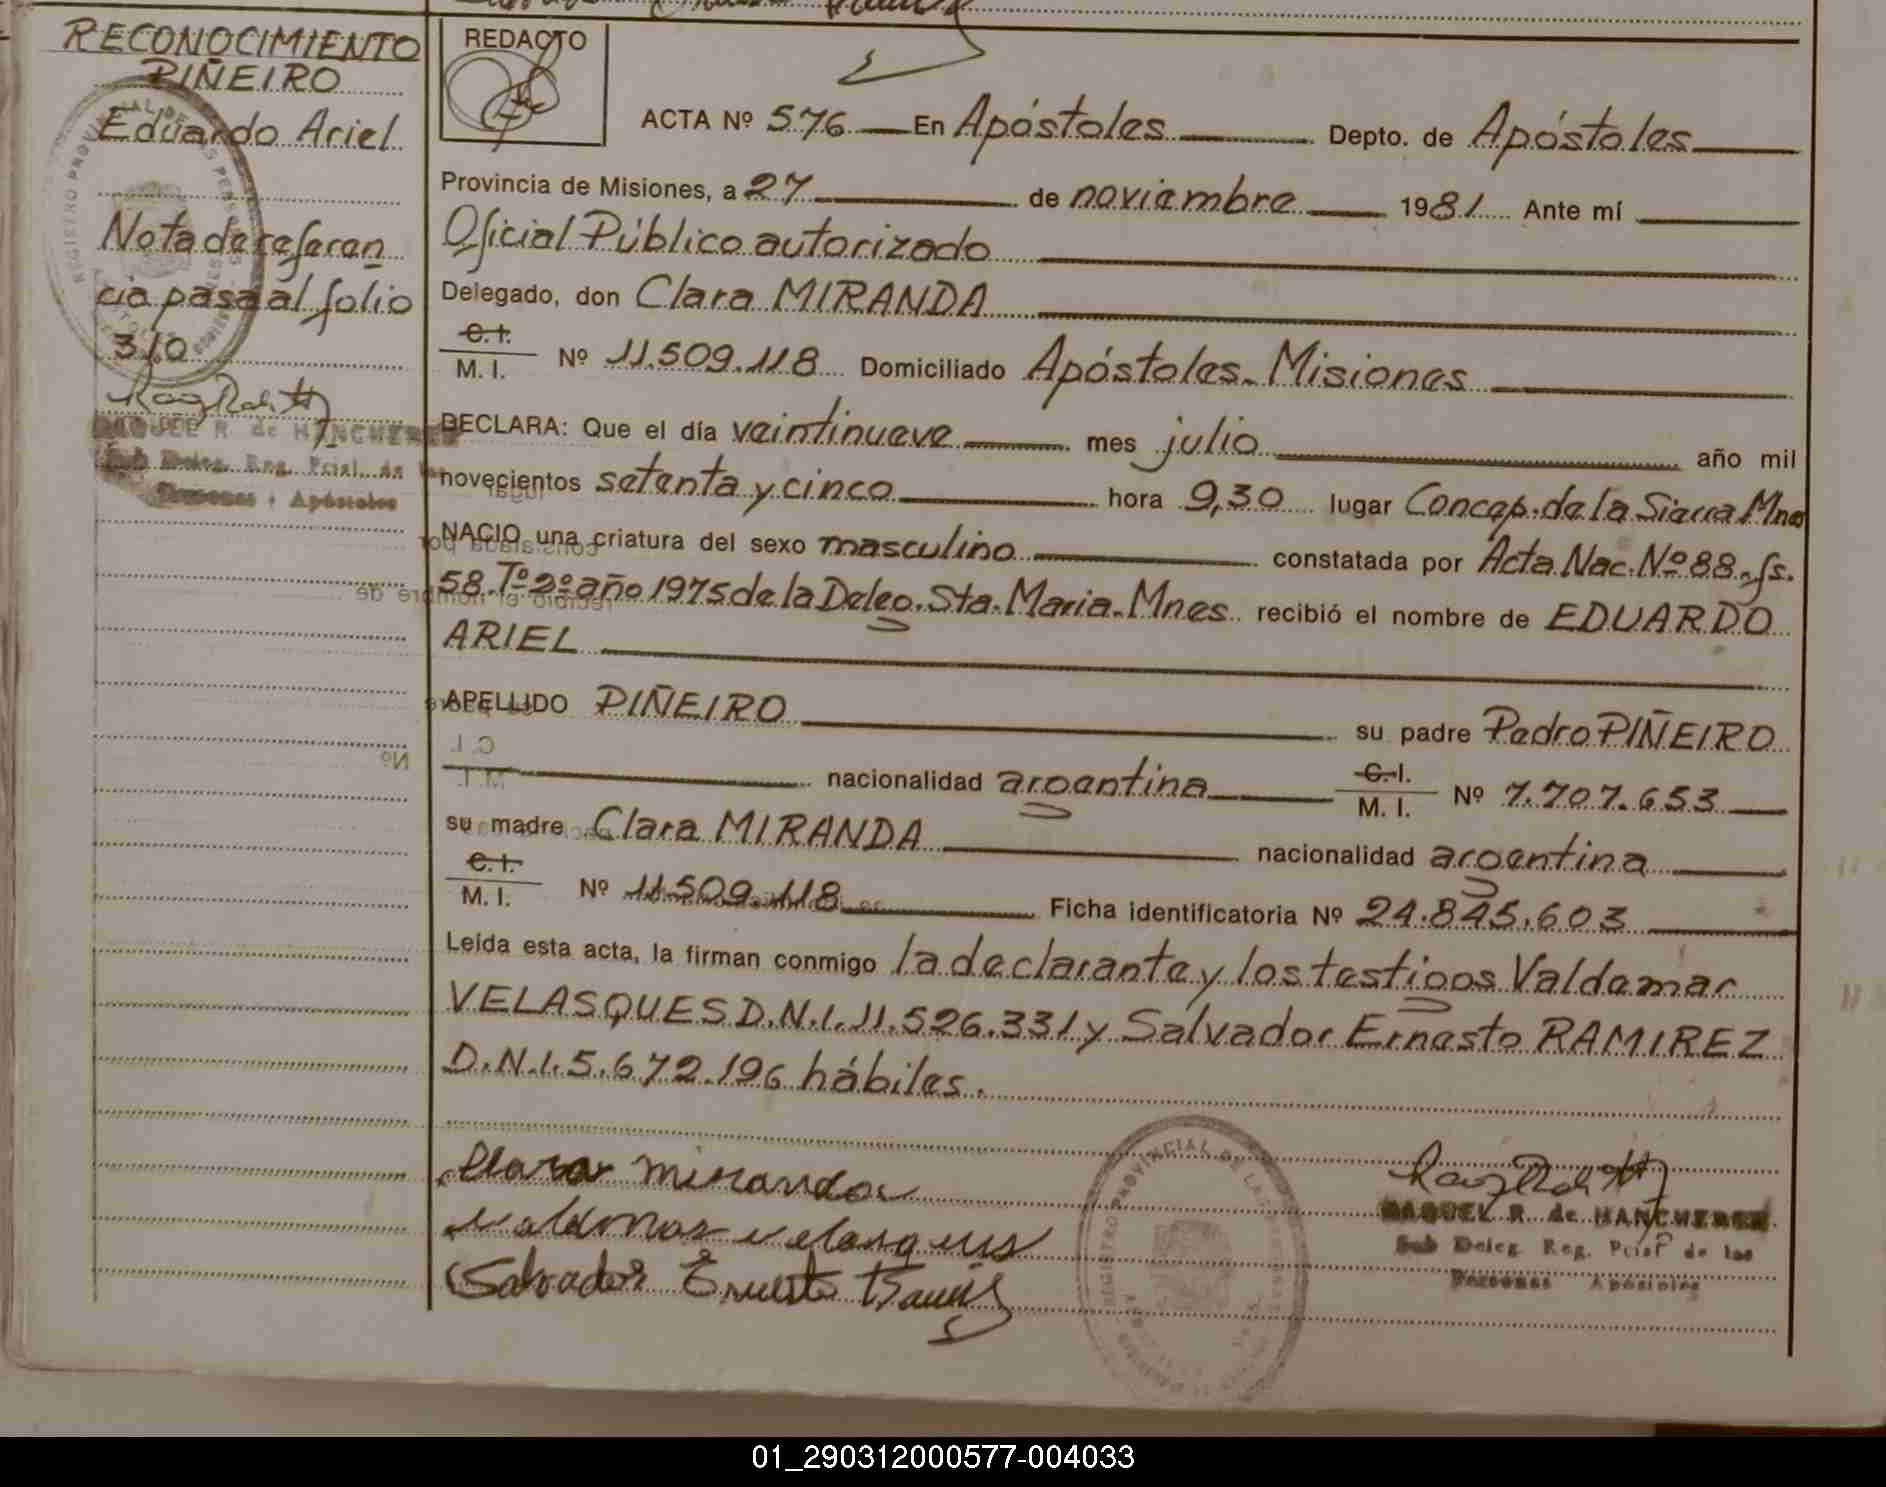 RECONOCIMIENTO
PIÑEIRO
Eduardo Ariel
Nota de referen
cia pasa al folio
310
RAQUEL R. de HANCHEREK
Sub Deleg. Reg. Pcial. de las
Personas - Apóstoles
REDACTO
ACTA Nº 576 En Apóstoles Depto. de Apóstoles
Provincia de Misiones, a 27 de noviembre 1981 Ante mí
Oficial Público autorizado
Delegado, don Clara MIRANDA
C.I.
M. I. Nº 11.509.118 Domiciliado Apóstoles. Misiones
DECLARA: Que el día veintinueve mes julio año mil
novecientos setenta y cinco hora 9,30 lugar Concep. de la Sierra Mnes
NACIO una criatura del sexo masculino constatada por Acta Nac. Nº 88. fs.
58. Tº 2º año 1975 de la Deleg. Sta. Maria. Mnes recibió el nombre de EDUARDO
ARIEL
APELLIDO PIÑEIRO su padre Pedro PIÑEIRO
nacionalidad argentina C.I. M. I. Nº 7.707.653
su madre Clara MIRANDA nacionalidad argentina
C.I.
M. I. Nº 11.509.118 Ficha identificatoria Nº 24.845.603
Leída esta acta, la firman conmigo la declarante y los testigos Valdemar
VELASQUES D.N.I. 11.526.331 y Salvador Ernesto RAMIREZ
D.N.I. 5.672.196 hábiles.
Clara Miranda
Valdmar velasques
Salvador Ernesto Ramirez
REGISTRO PROVINCIAL DE LAS PERSONAS
RAQUEL R. de HANCHEREK
Sub Deleg. Reg. Pcial de las
Personas Apóstoles
01_290312000577-004033